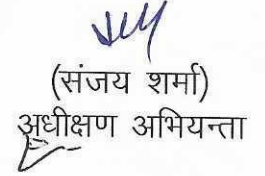 (संजय शर्मा)
अधीक्षण अभियन्ता